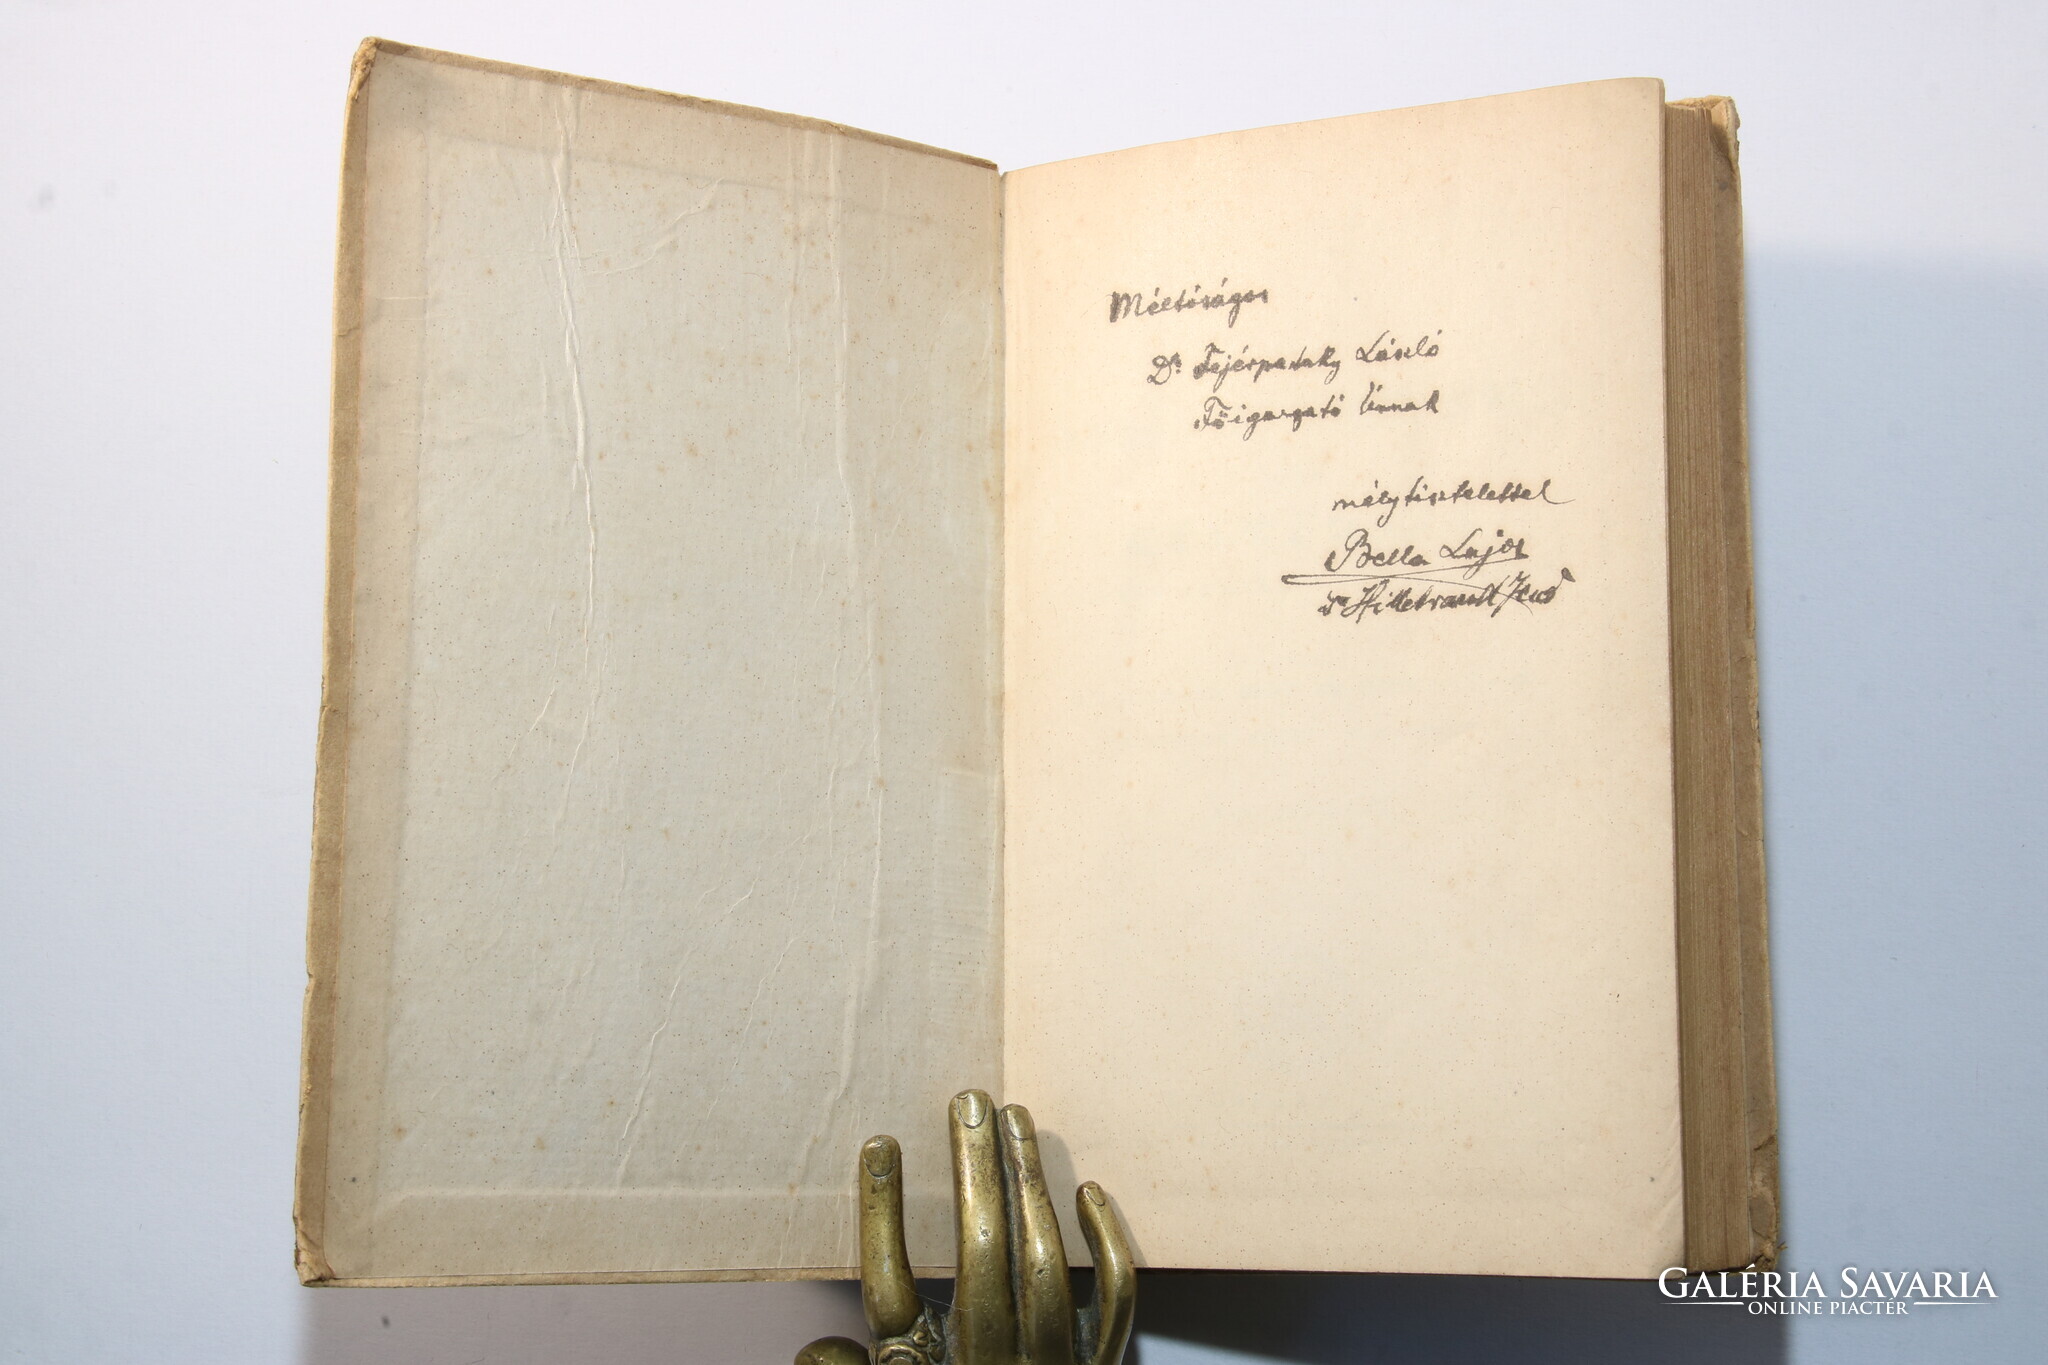 Méltóságos
Dr Fejérpataky László
Főigazgató Úrnak
mély tisztelettel
Bella Lajos
Dr Hillebrandt Jenő
GALÉRIA SAVARIA
ONLINE PIACTÉR